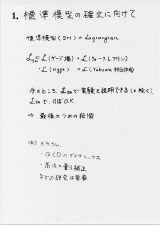 1. 標準模型の確立に向けて
標準模型 (SM) = Lagrangian
ℒ = ℒ(ゲージ場) + ℒ(フェルミオン)
+ ℒ(Higgs) + ℒ(Yukawa 相互作用)
今のところ、ℒ で実験を説明できる
⇒ 最後のつめの段階
もちろん、
・QCDのダイナミクス
・高次の量子補正
などの研究は重要